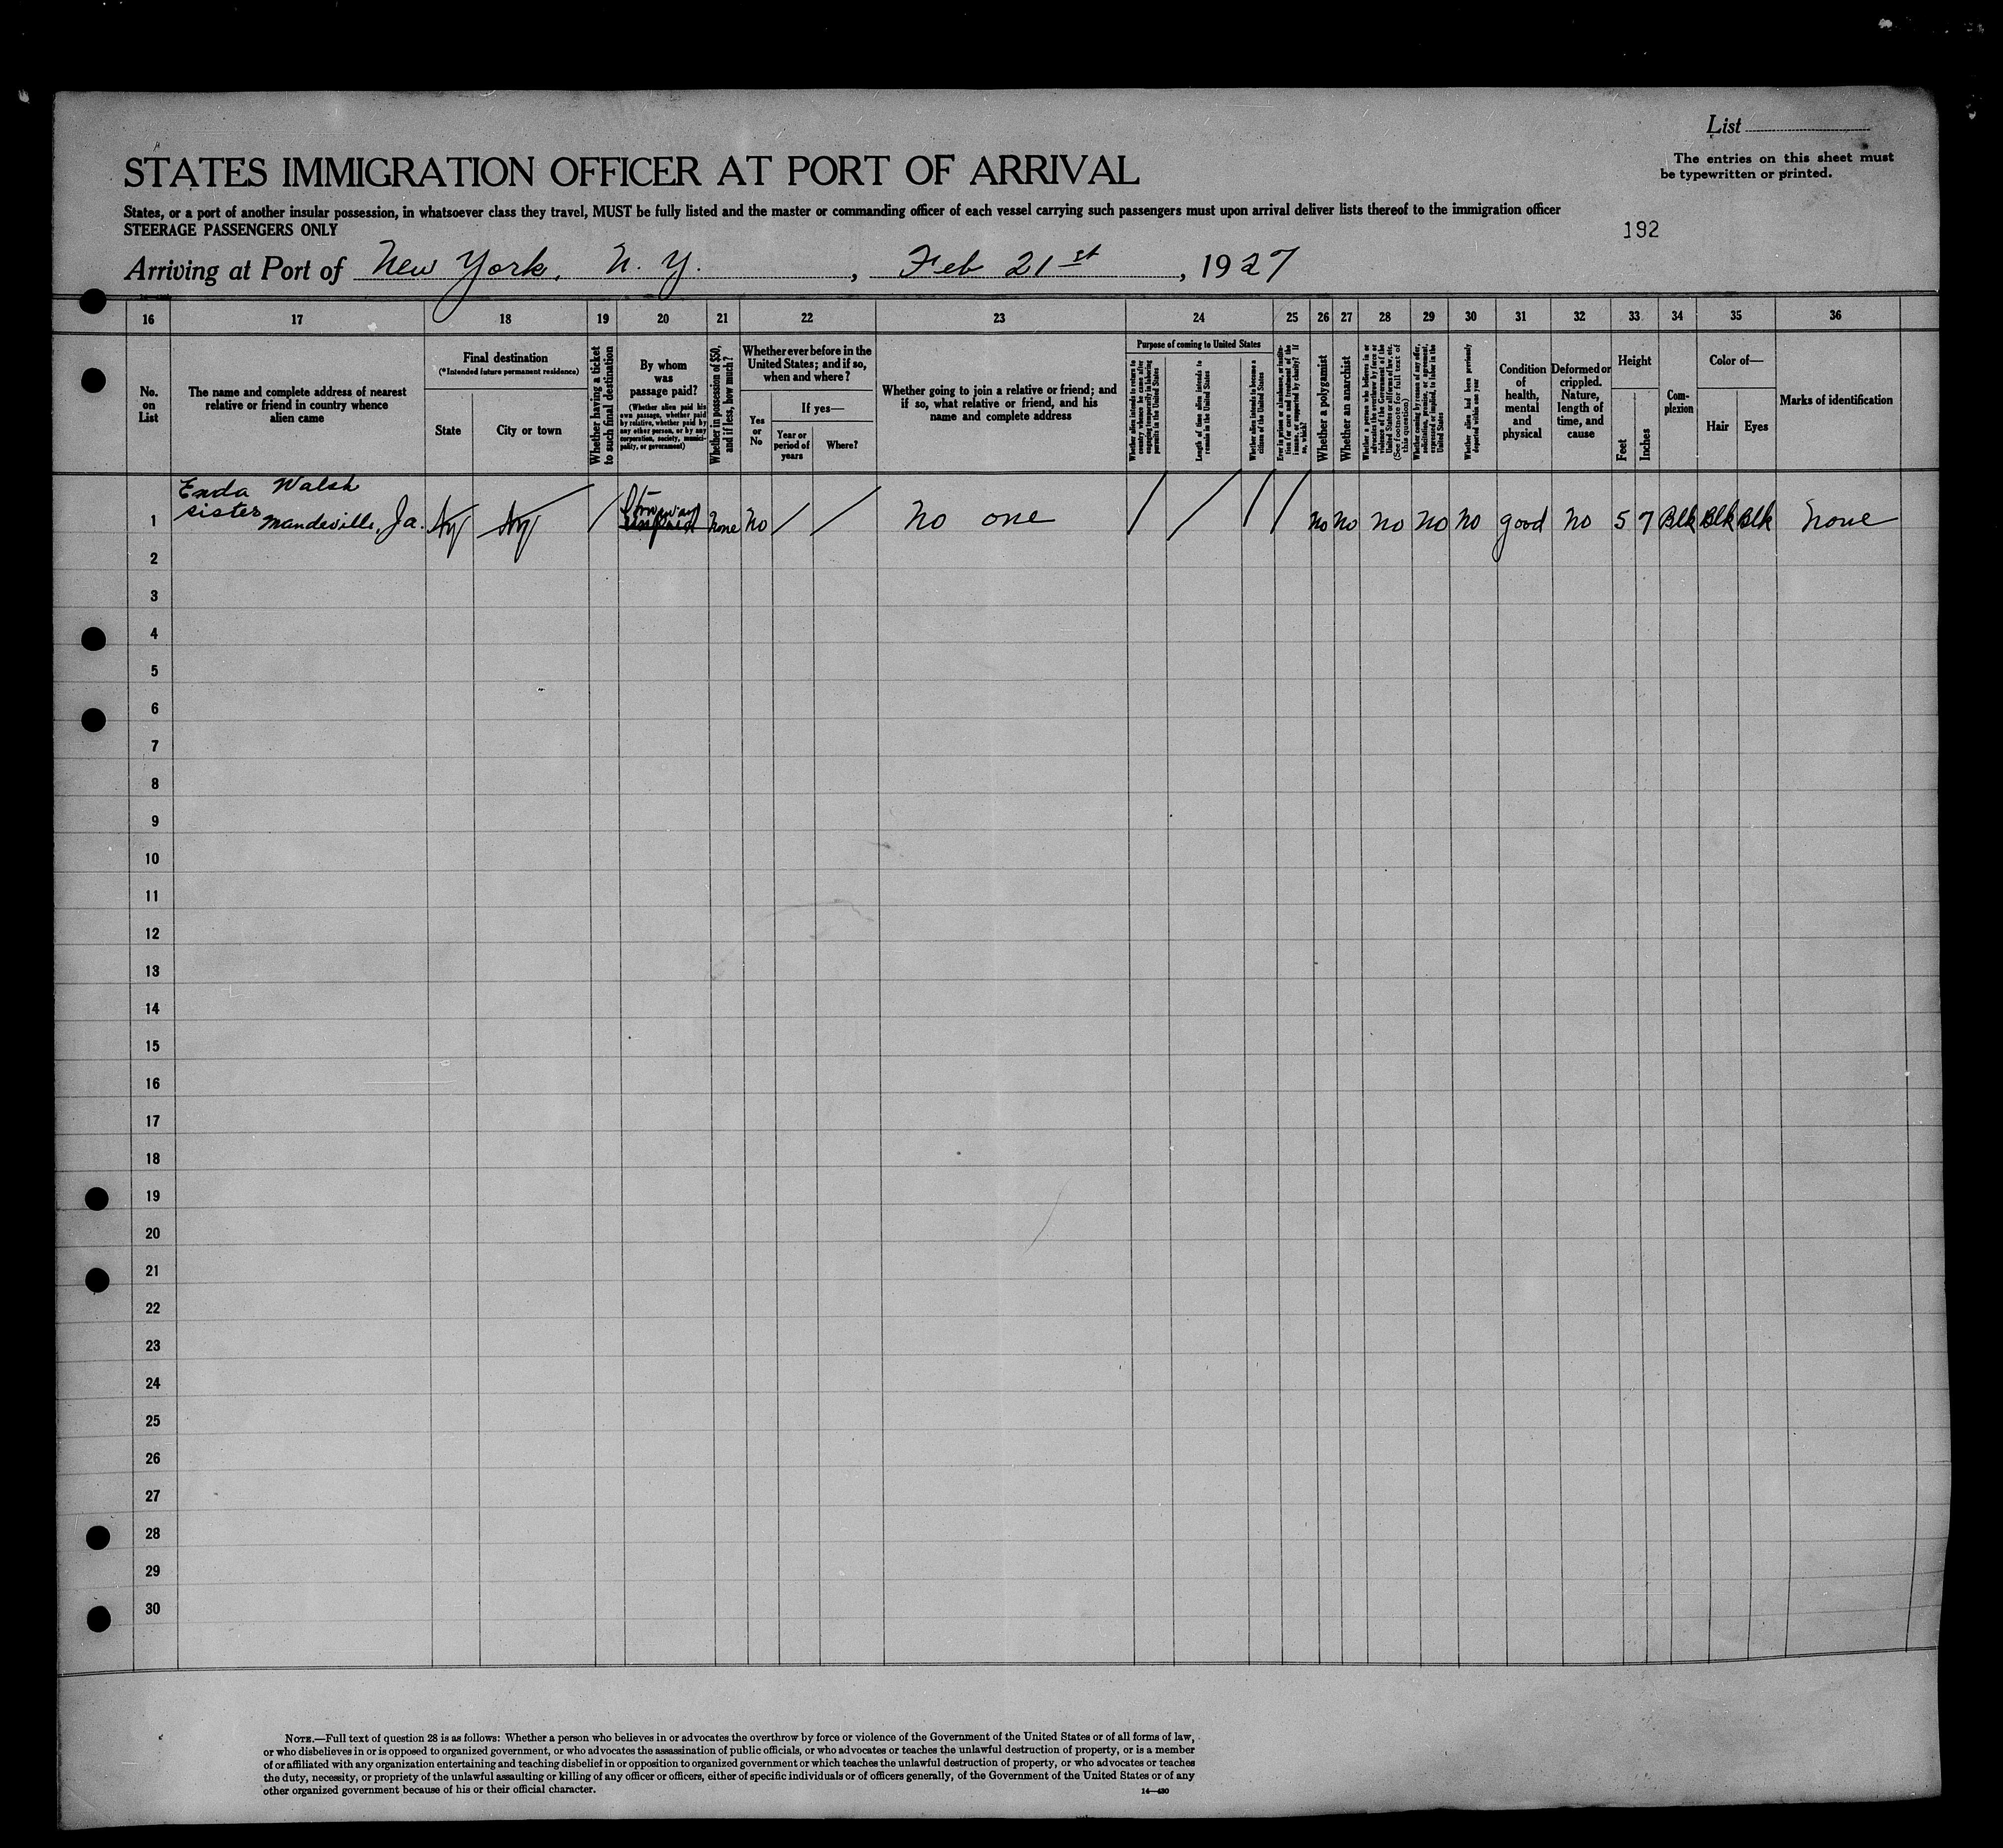 List
The entries on this sheet must
be typewritten or printed.
STATES IMMIGRATION OFFICER AT PORT OF ARRIVAL
States, or a port of another insular possession, in whatsoever class they travel, MUST be fully listed and the master or commanding officer of each vessel carrying such passengers must upon arrival deliver lists thereof to the immigration officer
STEERAGE PASSENGERS ONLY
192
Arriving at Port of New York, N. Y. , Feb 21st , 1927
16 17 18 19 20 21 22 23 24 25 26 27 28 29 30 31 32 33 34 35 36
No.
on
List
The name and complete address of nearest
relative or friend in country whence
alien came
Final destination
(*Intended future permanent residence)
State
City or town
Whether having a ticket
to such final destination
By whom
was
passage paid?
(Whether alien paid his
own passage, whether paid
by relative, whether paid by
any other person, or by any
corporation, society, munici-
pality, or government)
Whether in possession of $50,
and if less, how much?
Whether ever before in the
United States; and if so,
when and where?
Yes
or
No
If yes—
Year or
period of
years
Where?
Whether going to join a relative or friend; and
if so, what relative or friend, and his
name and complete address
Purpose of coming to United States
Whether alien intends to return to
country whence he came after
engaging temporarily in laboring
pursuits in the United States
Length of time alien intends to
remain in the United States
Whether alien intends to become a
citizen of the United States
Ever in prison or almshouse, or institu-
tion for care and treatment of the
insane, or supported by charity? If
so, which?
Whether a polygamist
Whether an anarchist
Whether a person who believes in or
advocates the overthrow by force or
violence of the Government of the
United States or all forms of law, etc.
(See footnote for full text of
this question)
Whether coming by reason of any offer,
solicitation, promise, or agreement,
expressed or implied, to labor in the
United States
Whether alien had been previously
deported within one year
Condition
of
health,
mental
and
physical
Deformed or
crippled.
Nature,
length of
time, and
cause
Height
Feet
Inches
Com-
plexion
Color of—
Hair
Eyes
Marks of identification
Enda Walsh
sister Mandeville, Ja.
1 NY NY Stowaway None No No one No No No No No good No 5 7 Blk Blk Blk None
2
3
4
5
6
7
8
9
10
11
12
13
14
15
16
17
18
19
20
21
22
23
24
25
26
27
28
29
30
NOTE.—Full text of question 28 is as follows: Whether a person who believes in or advocates the overthrow by force or violence of the Government of the United States or of all forms of law,
or who disbelieves in or is opposed to organized government, or who advocates the assassination of public officials, or who advocates or teaches the unlawful destruction of property, or is a member
of or affiliated with any organization entertaining and teaching disbelief in or opposition to organized government or which teaches the unlawful destruction of property, or who advocates or teaches
the duty, necessity, or propriety of the unlawful assaulting or killing of any officer or officers, either of specific individuals or of officers generally, of the Government of the United States or of any
other organized government because of his or their official character.
14—430